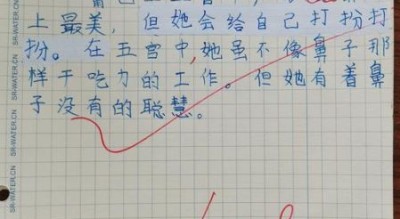 上最美，但她会给自己打扮打
扮。在五官中,她虽不像鼻子那
样干吃力的工作。但她有着鼻
子没有的聪慧。